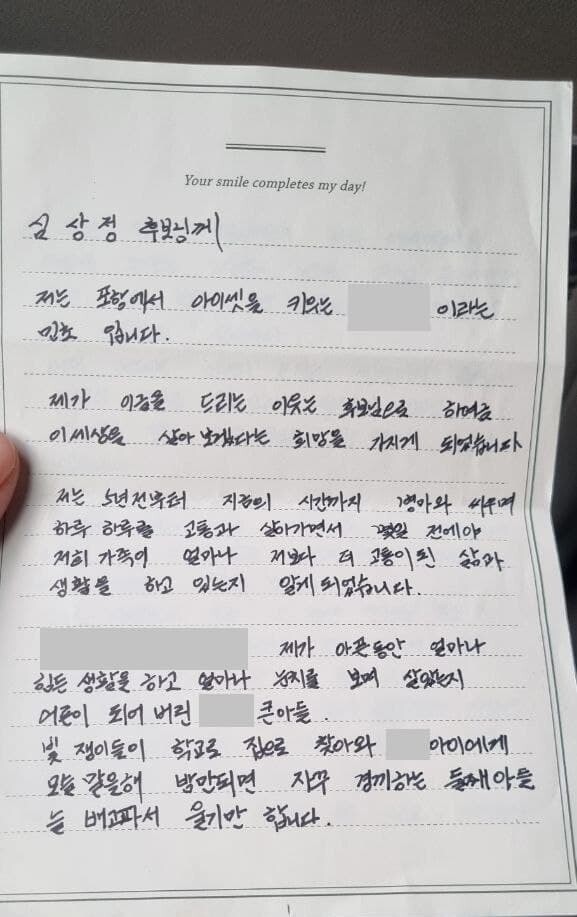 Your smile completes my day!
심 상 정 후보님께
저는 포항에서 아이셋을 키우는 이라는
민초 입니다.
제가 이글을 드리는 이유는 후보님으로 하여금
이세상을 살아 보겠다는 희망을 가지게 되었습니다
저는 5년전부터 지금의 시간까지 병마와 싸우며
하루 하루를 고통과 살아가면서 몇일 전에야
저희 가족이 얼마나 저보다 더 고통이 된 삶과
생활을 하고 있는지 알게 되었습니다.
제가 아픈동안 얼마나
힘든 생활을 하고 얼마나 눈치를 보며 살았는지
어른이 되어 버린 큰아들.
빚 쟁이들이 학교로 집으로 찾아와 아이에게
오늘 밤만되면 자꾸 경끼하는 둘째아들
늘 배고파서 울기만 합니다.
1